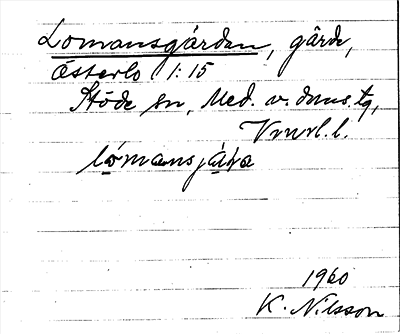 Lomansgården, gårde,
Österlo 1:15
Stöde sn, Med. v. doms. tg,
Vnrl. l.
lómansjáḷa
1960
K. Nilsson